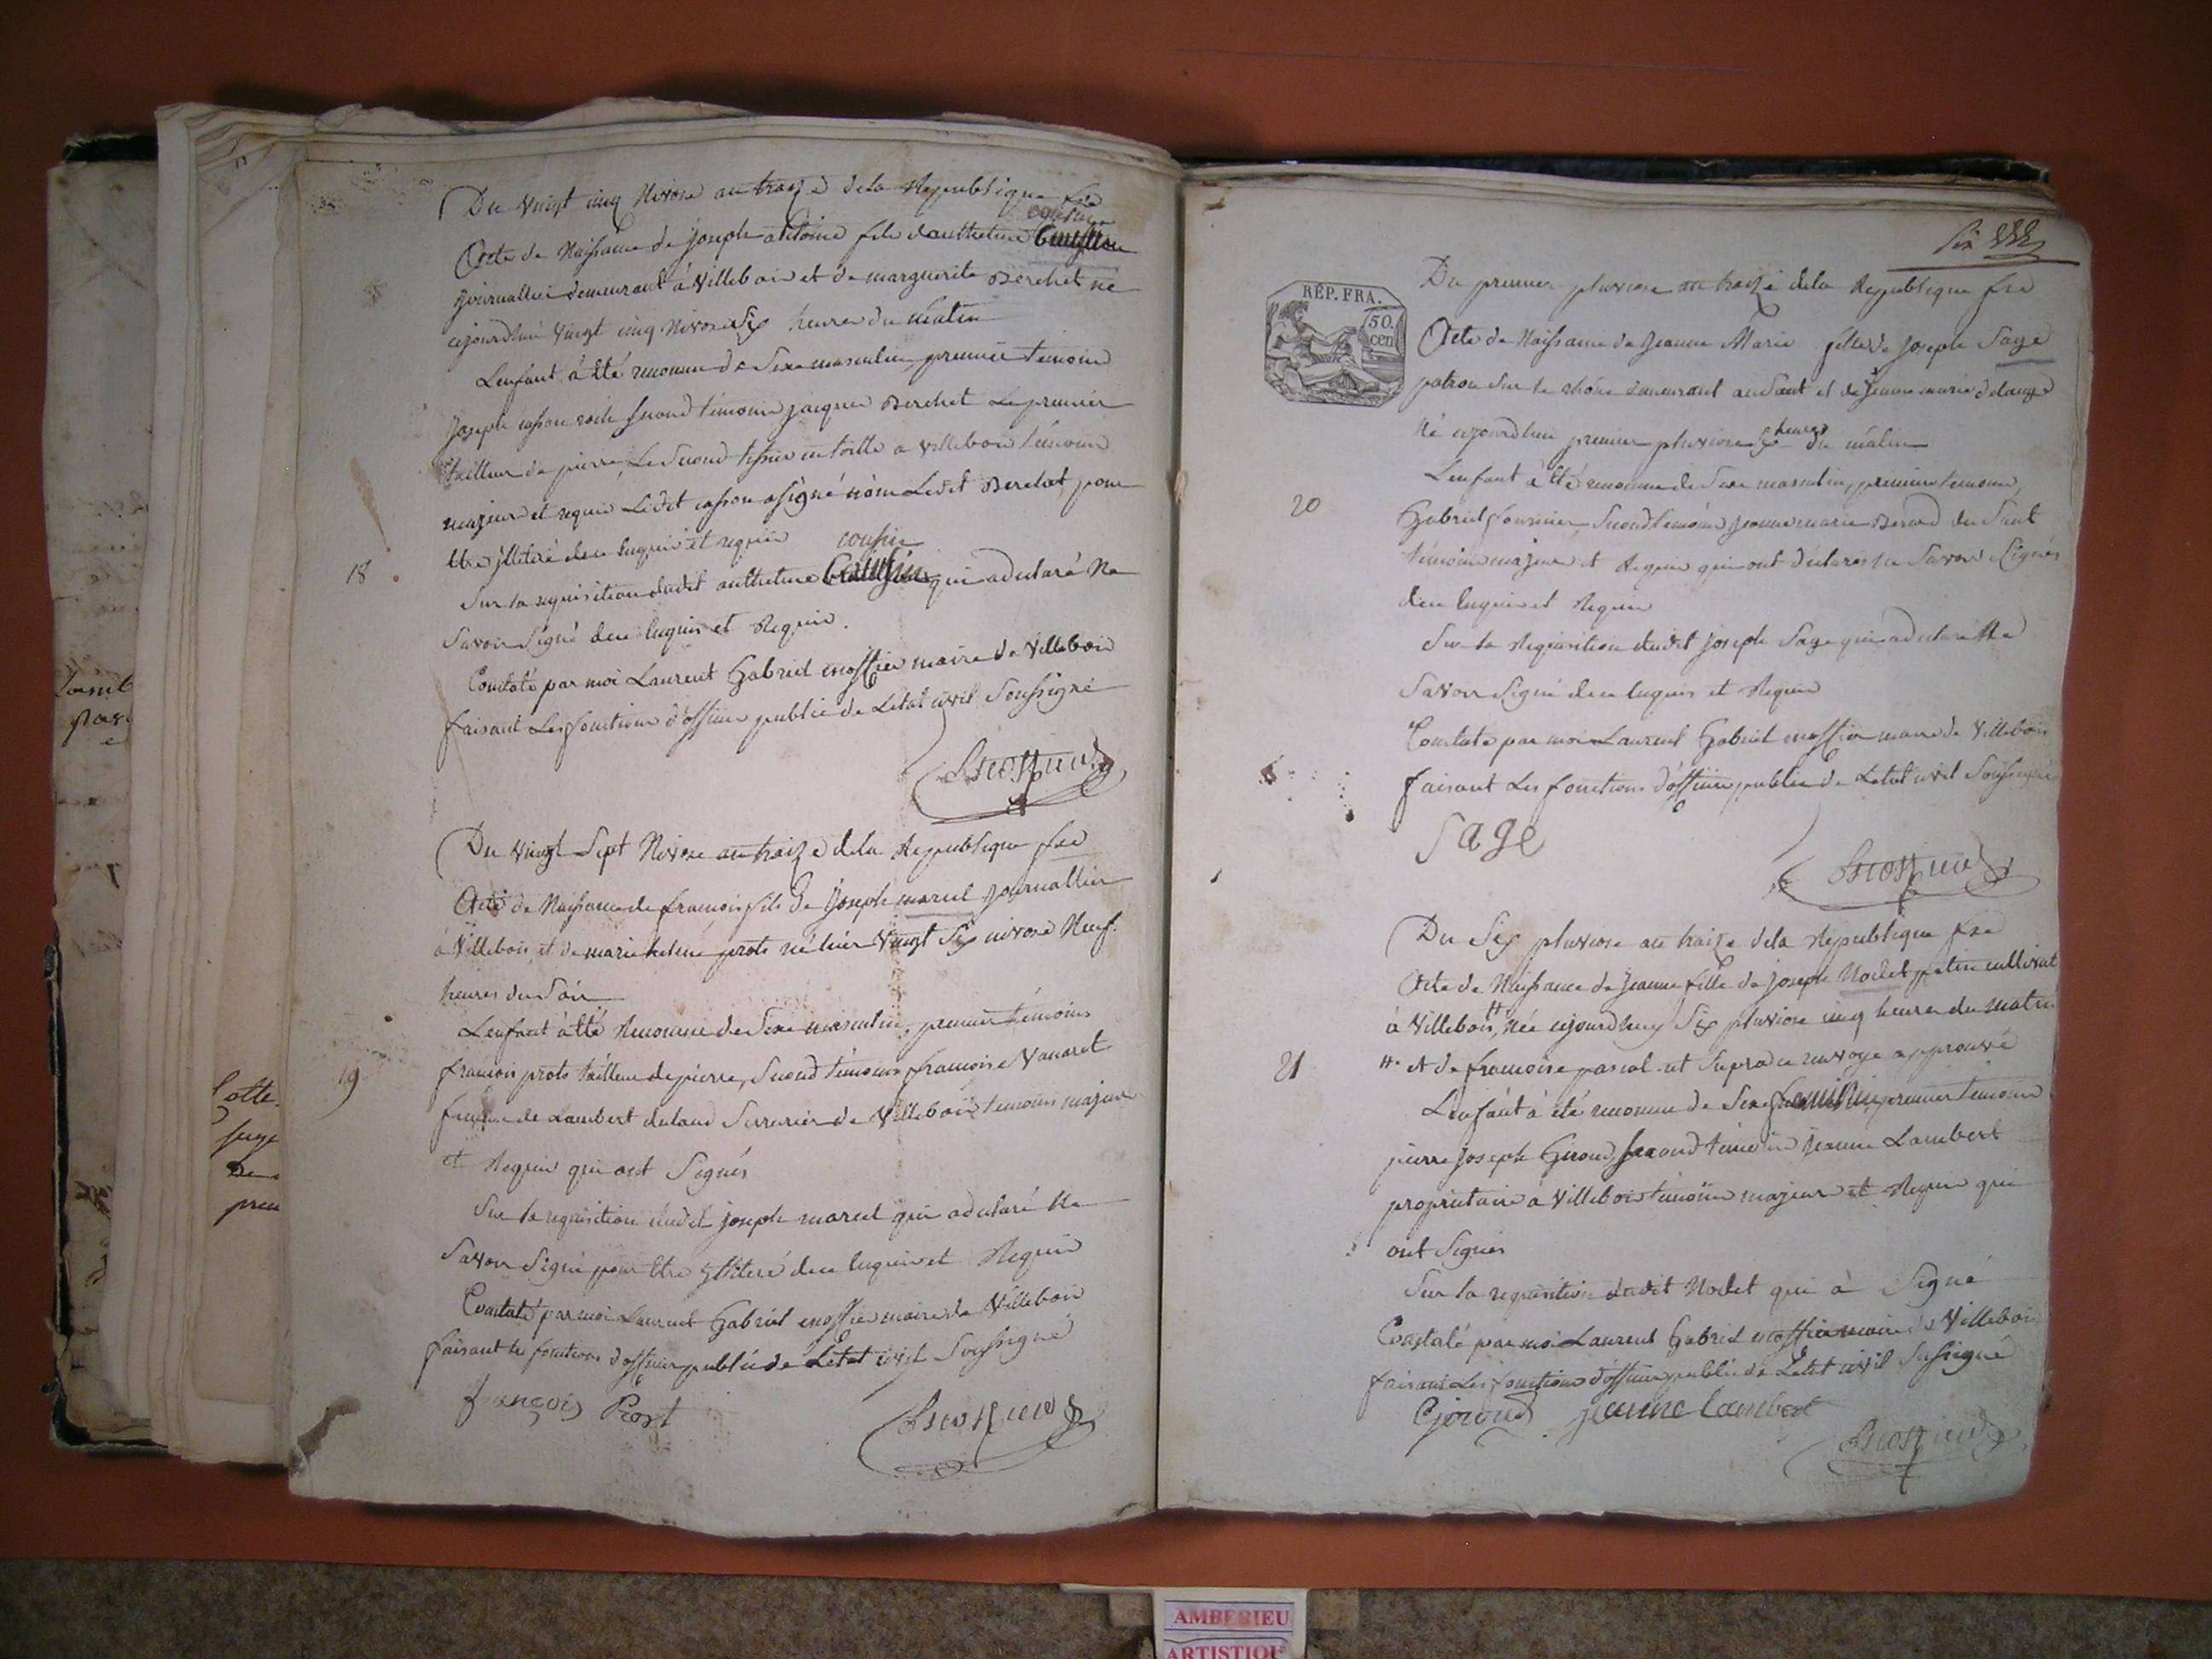 Du vingt cinq Nivose an traize dela Republique fse
cousin
Acte de Naissance de joseph antoine fils d'anthelme
journallier demeurant à Villebois et de marguerite Berchet né
cejourdhui vingt cinq Nivose Six heures du matin
Lenfant à été reconnu de Sexe masculin, premier temoin
joseph casson second témoin jacques Berchet Le premier
tailleur de pierre, Le Second tissier en toille a Villebois témoins
majeurs et requis Ledit casson a signé non Ledit Berchet pour
être illiteré de ce enquis et requis
cousin
18
Sur la requisition dudit anthelme qui a declaré Ne
Savoir Signé de ce enquis et Requis.
Constaté par moi Laurent Gabriel maire de Villebois
faisant Les fonctions d'officier public de Letat civil Soussigné
Du vingt Sept Nivose an traize dela Republique fse
Acte de Naissance de francois fils de Joseph marcel journallier
à Villebois et de marie helene prots né hier vingt Six nivose Neuf
heures du Soir
Lenfant à été Reconnu de Sexe masculin, premier témoins
19
francois prots tailleur de pierre, Second témoins francoise Vanaret
femme de Lambert dulaud Serrurier de Villebois temoins majeurs
et Requis qui ont Signés
Sur la requisition dudit joseph marcel qui a declaré Ne
Savoir Signé pour être illiteré de ce enquis et Requis
Constaté par moi Laurent Gabriel maire de Villebois
faisant les fonctions d'officier public de Letat civil Soussigné
françois Prost
Six
RÉP. FRA.
50.
cen
Du premier pluviose an traize dela Republique fse
Acte de Naissance de Jeanne Marie fille de Joseph Sage
patron Sur le rhône demeurant au Saut et de Jeanne marie
heures
Né cejourdhui premier pluviose Six du mâtin
Lenfant à été reconnu de Sexe masculin, premier temoins
20
Gabriel fournier, Second témoins jeanne marie Berod du Saut
témoins majeurs et Requis qui ont déclarés ne Savoir Signés
de ce enquis et Requis
Sur la Requisition dudit joseph Sage qui a declaré Ne
Savoir Signé de ce enquis et Requis
Constaté par moi Laurent Gabriel maire de Villebois
faisant Les fonctions d'officier public de Letat civil Soussigné
Sage
Du Six pluviose an traize dela Republique fse
Acte de Naissance de Jeanne fille de joseph Nodet cultivat
à Villebois, née cejourdhuy Six pluviose cinq heures du matin
21
et de francoise pascal renvoye approuvé
Lenfant à été reconnu de Sexe feminin, premier témoins
pierre joseph Giroud, Second témoin jeanne Lambert
proprietaire à Villebois témoins majeurs et Requis qui
ont Signés
Sur la requisition dudit Nodet qui à Signé
Constaté par moi Laurent Gabriel maire de Villebois
faisant Les fonctions d'officier public de Letat civil Sussigné
Giroud jeanne Lambert
AMBERIEU
ARTISTIQU